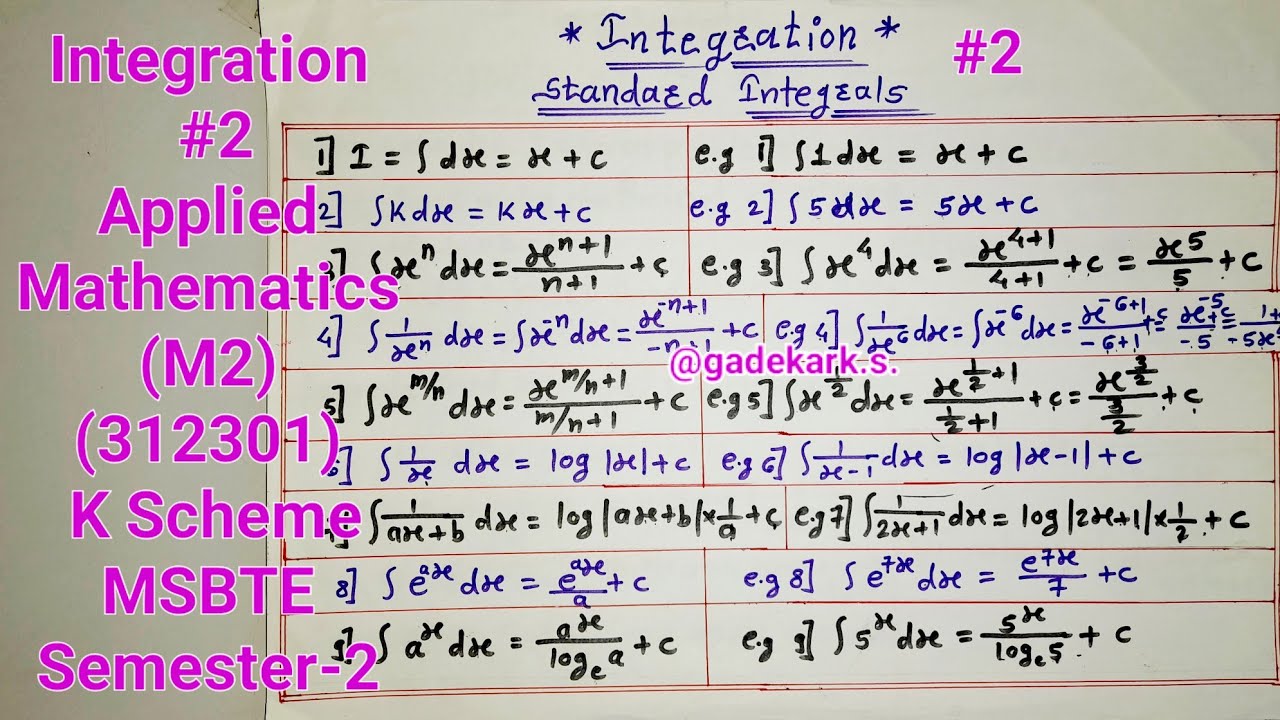 Integration
#2
Applied
Mathematics
(M2)
(312301)
K Scheme
MSBTE
Semester-2
* Integration *
#2
Standard Integrals
1] I = ∫ dx = x + c
e.g 1] ∫1 dx = x + c
2] ∫K dx = Kx + c
e.g 2] ∫5 dx = 5x + c
3] ∫x^n dx = x^(n+1)/(n+1) + c
e.g 3] ∫x^4 dx = x^(4+1)/(4+1) + c = x^5/5 + c
4] ∫1/x^n dx = ∫x^-n dx = x^(-n+1)/(-n+1) + c
e.g 4] ∫1/x^6 dx = ∫x^-6 dx = x^(-6+1)/(-6+1) + c = x^-5/-5 + c = 1/-5x
@gadekark.s.
5] ∫x^(m/n) dx = x^(m/n+1)/(m/n+1) + c
e.g 5] ∫x^(1/2) dx = x^(1/2+1)/(1/2+1) + c = x^(3/2)/(3/2) + c
6] ∫1/x dx = log|x| + c
e.g 6] ∫1/(x-1) dx = log|x-1| + c
∫1/(ax+b) dx = log|ax+b| × 1/a + c
e.g 7] ∫1/(2x+1) dx = log|2x+1| × 1/2 + c
8] ∫e^(ax) dx = e^(ax)/a + c
e.g 8] ∫e^(7x) dx = e^(7x)/7 + c
9] ∫a^x dx = a^x/log_e a + c
e.g 9] ∫5^x dx = 5^x/log_e 5 + c